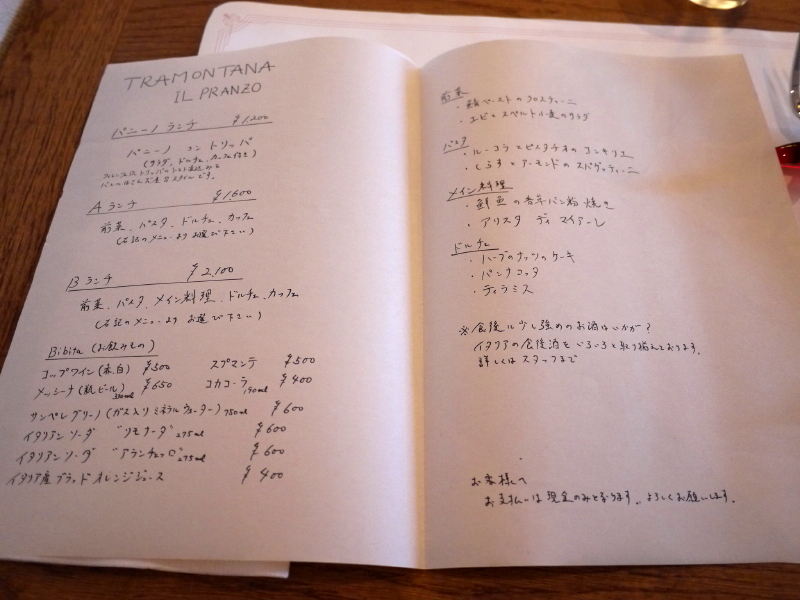 TRAMONTANA
IL PRANZO
パニーノ ランチ ¥1,200
パニーノ コン トリッパ
(サラダ、ドルチェ、カッフェ付き)
Aランチ ¥1,600
前菜、パスタ、ドルチェ、カッフェ
(右記のメニューよりお選び下さい)
Bランチ ¥2,100
前菜、パスタ、メイン料理、ドルチェ、カッフェ
(右記のメニューより お選び下さい)
Bibita (お飲みもの)
コップワイン(赤,白) ¥500 スプマンテ ¥500
メッシーナ(瓶ビール)330ml ¥650 コカコーラ190ml ¥400
サンペレグリーノ(ガス入りミネラルウォーター)750ml ¥600
イタリアンソーダ "リモナータ"275ml ¥600
イタリアンソーダ "アランチャータ"275ml ¥600
イタリア産ブラッドオレンジジュース ¥400
前菜
・ペーストのクロスティーニ
・エビとスペルト小麦のサラダ
パスタ
・ルーコラとピスタチオのコンキリエ
・しらすとアーモンドのスパゲッティーニ
メイン料理
・鮮魚の香草パン粉焼き
・アリスタ ディ マイアーレ
ドルチェ
・ハーブのナッツのケーキ
・パンナコッタ
・ティラミス
※食後に少し強めのお酒はいかが?
イタリアの食後酒をいろいろと取り揃えております。
詳しくはスタッフまで
お客様へ
お支払いは現金のみとなります。よろしくお願いします。